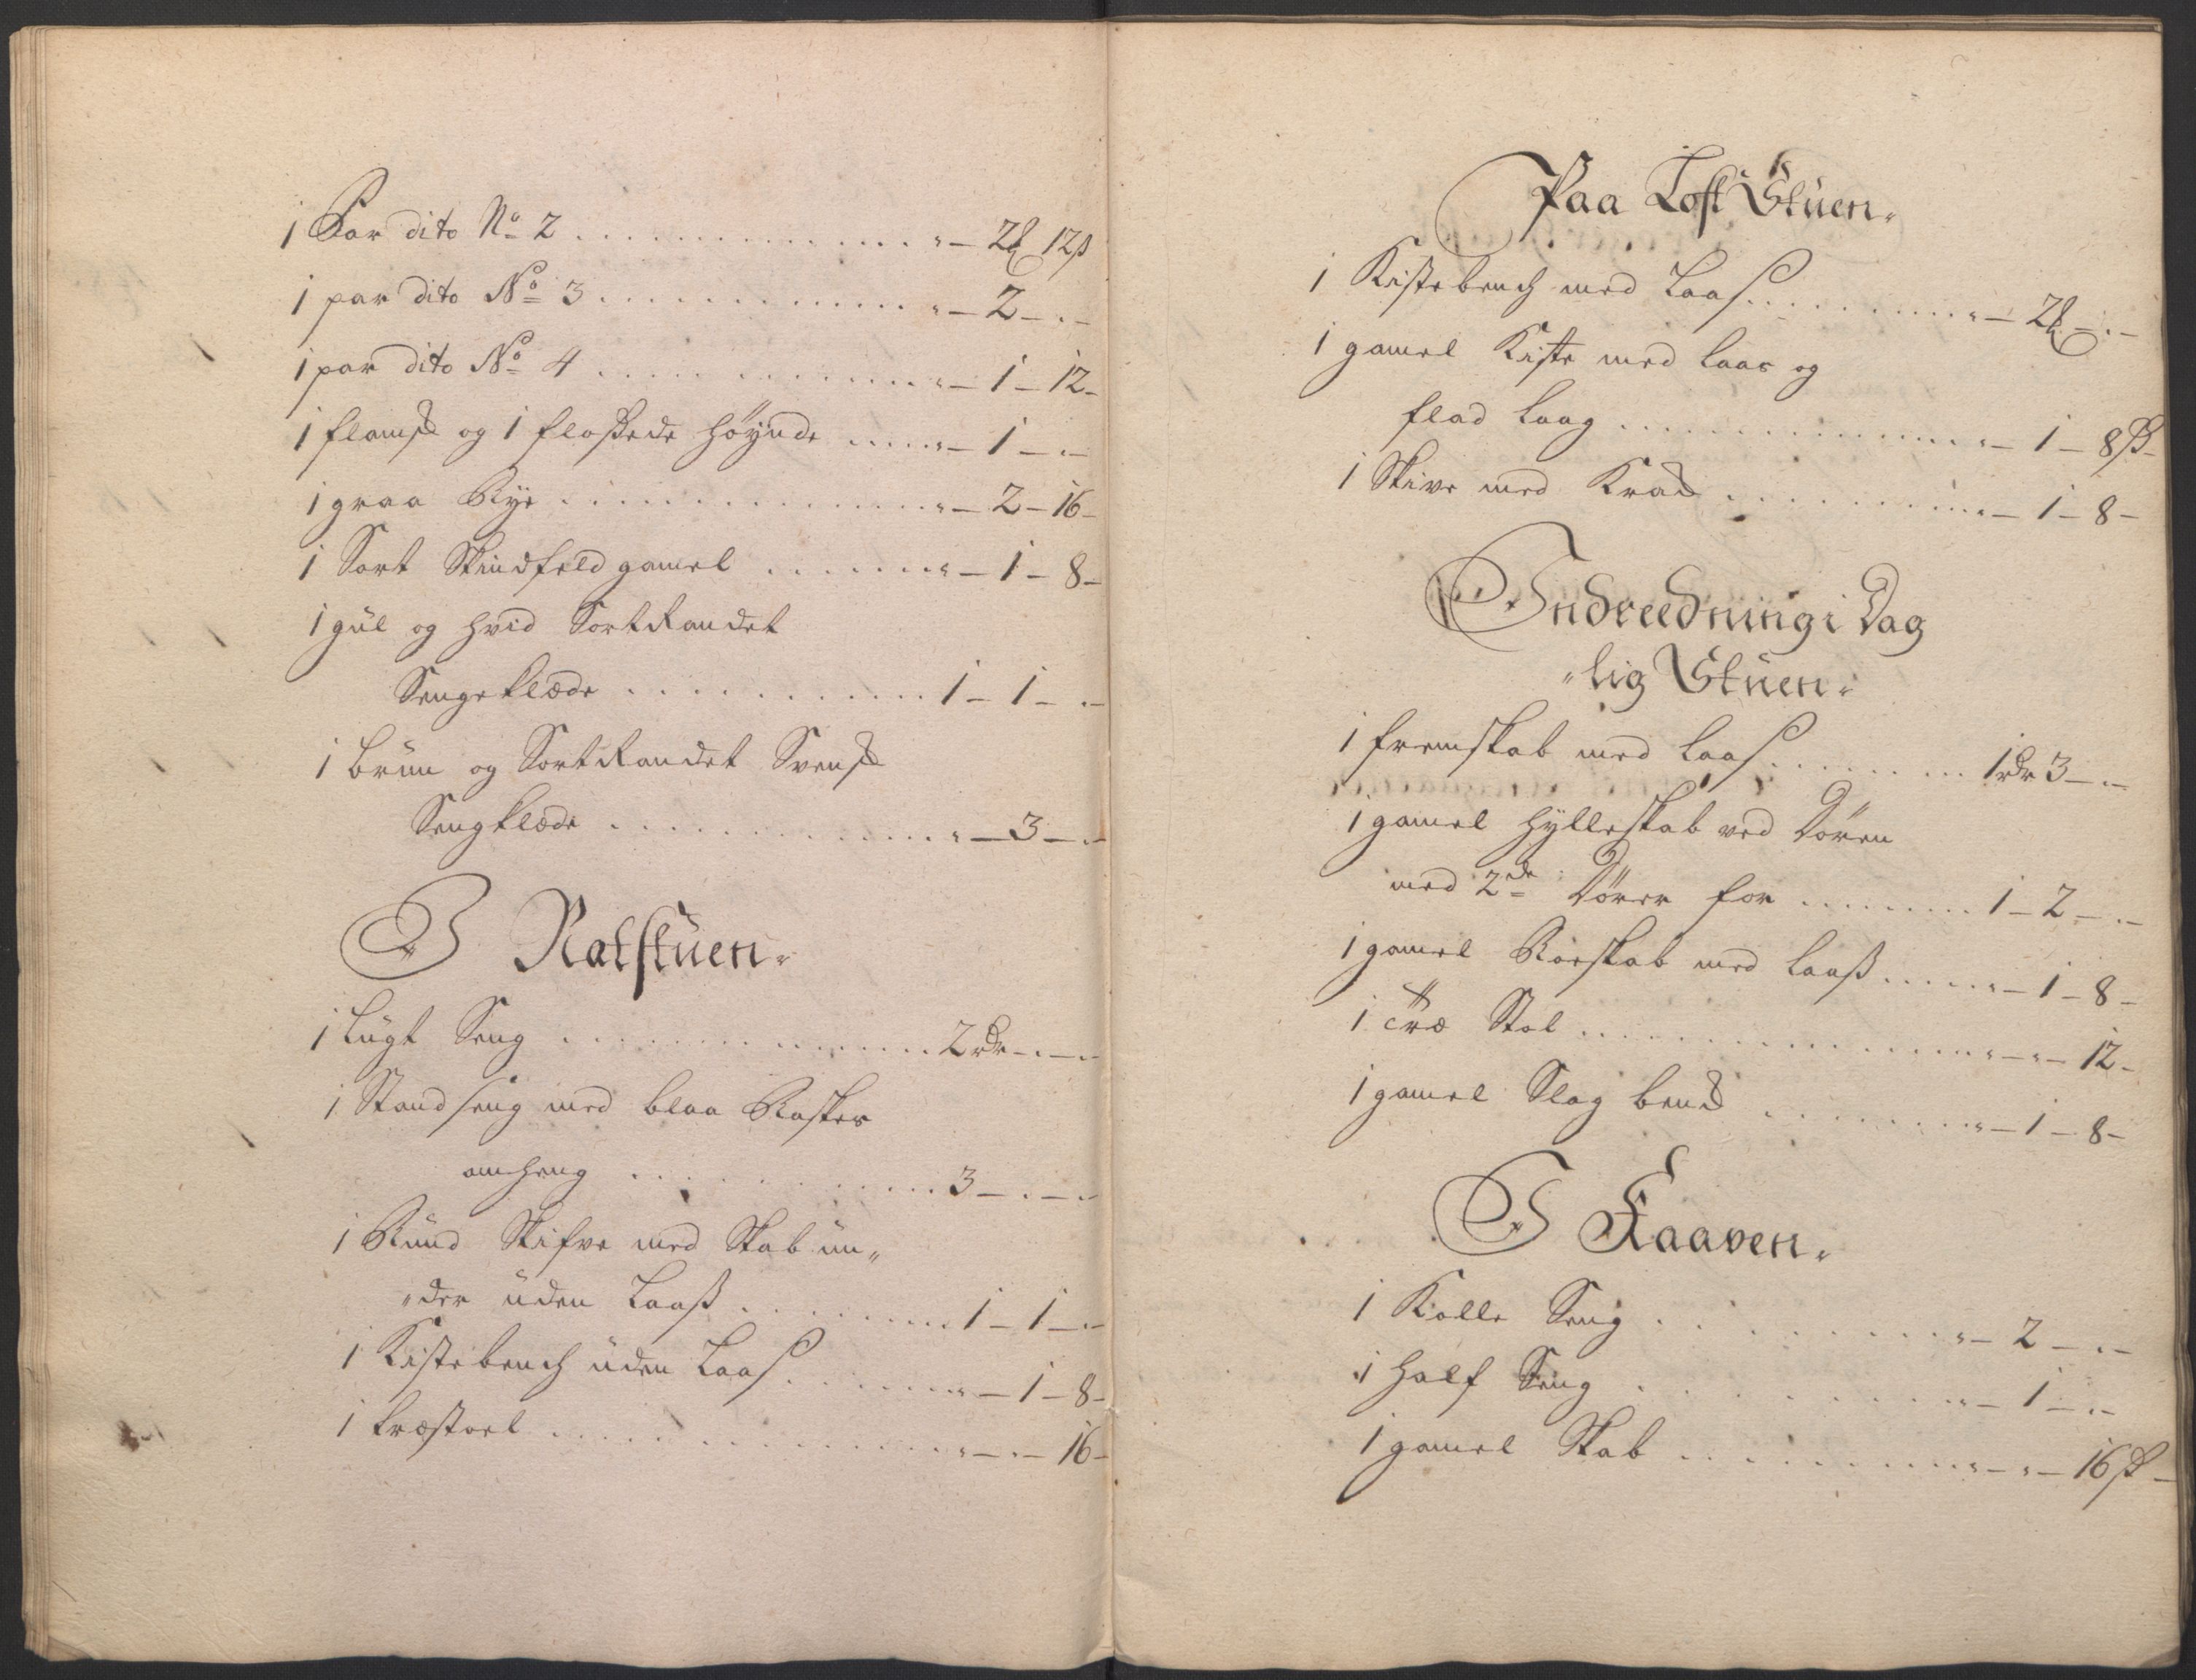 1 Par dito No 2 . . . . . . . . . . . . " – 2 12ß
1 par dito No 3 . . . . . . . . . . . . " – 2 – " –
1 par dito No 4 . . . . . . . . . . . . " – 1 – 12 –
1 flamsk og 1 flossede Höÿnde . . . . " – 1 – " –
1 graa Rÿe . . . . . . . . . . . . " – 2 – 16 –
1 Sort Skindfeld gamel . . . . . . " – 1 – 8 –
1 gül og hvid Sort Randet
Sengeklæde . . . . . . . . . . 1 – 1 – " –
1 brün og Sort Randet Svensk
Sengklæde . . . . . . . . . . . " – 3 – " –
I Natstüen.
1 Lügt Seng . . . . . . . . . . . . 2 rdr – " – " –
1 Stand seng med blaa Raskes
omheng . . . . . . . . . . 3 – " – " –
1 Ründ Skifve med Skab ün„
„der üden Laaß . . . . . . . . 1 – 1 – " –
1 Kistebench üden Laas . . . . . . " – 1 – 8 –
1 træstoel . . . . . . . . . . . . " – " – 16 –
Paa Loft Stüen.
1 Kistebench med Laas . . . . . . . . " – 2 – " –
1 gamel Kiste med laas og
flad laag . . . . . . . . . . . . " – 1 – 8ß –
1 Skive med Krak . . . . . . . . . . " – 1 – 8 –
Indreedning i Dag
„lig Stüen.
1 fremskab med laas . . . . . . . . 1 rdr 3 – " –
1 gamel Hÿlleskab ved Dören
med 2de Dörer for . . . . . . . 1 – 2 – " –
1 gamel Roeskab med laaß . . . . . " – 1 – 8 –
1 træ Stol . . . . . . . . . . . . " – " – 12 –
1 gamel Slag benk . . . . . . . . " – 1 – 8 –
I Kaaven.
1 Rolle Seng . . . . . . . . . . " – 2 – " –
1 Half Seng . . . . . . . . . . " – 1 – " –
1 gamel Skab . . . . . . . . . . " – " – 16ß –